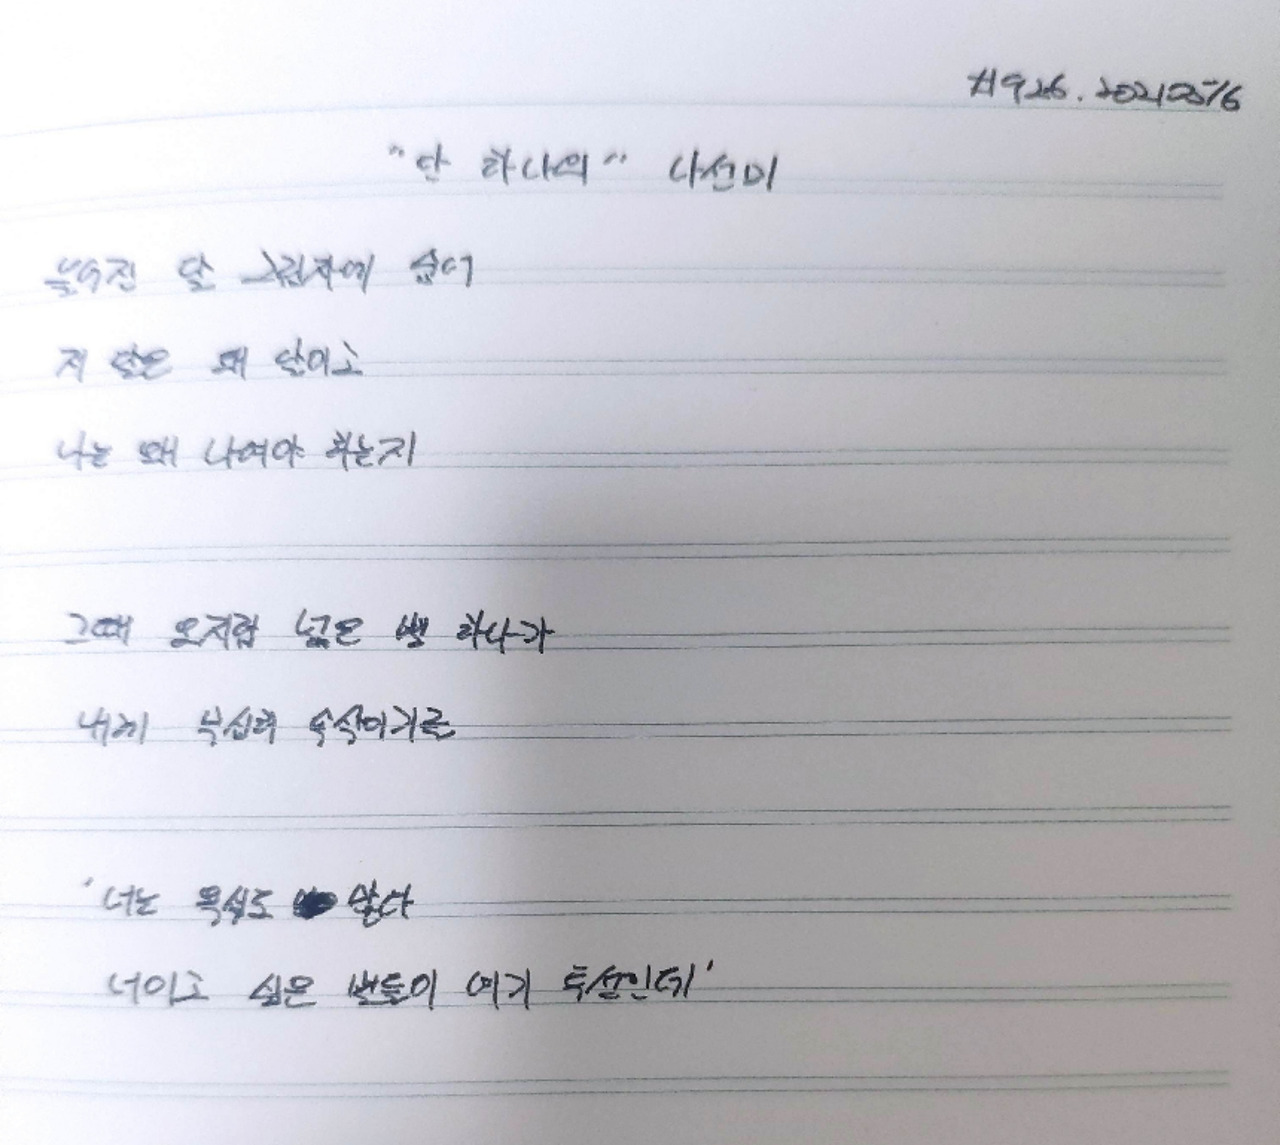 #926. 20210516
"단 하나의" 나선미
늘어진 달 그림자에 숨어
저 달은 왜 달이고
나는 왜 나여야 하는지
그때 오지랖 넓은 별 하나가
내게 부심히 속삭이기를
'너는 욕심도 많다
너이고 싶은 별들이 여기 투성인데'